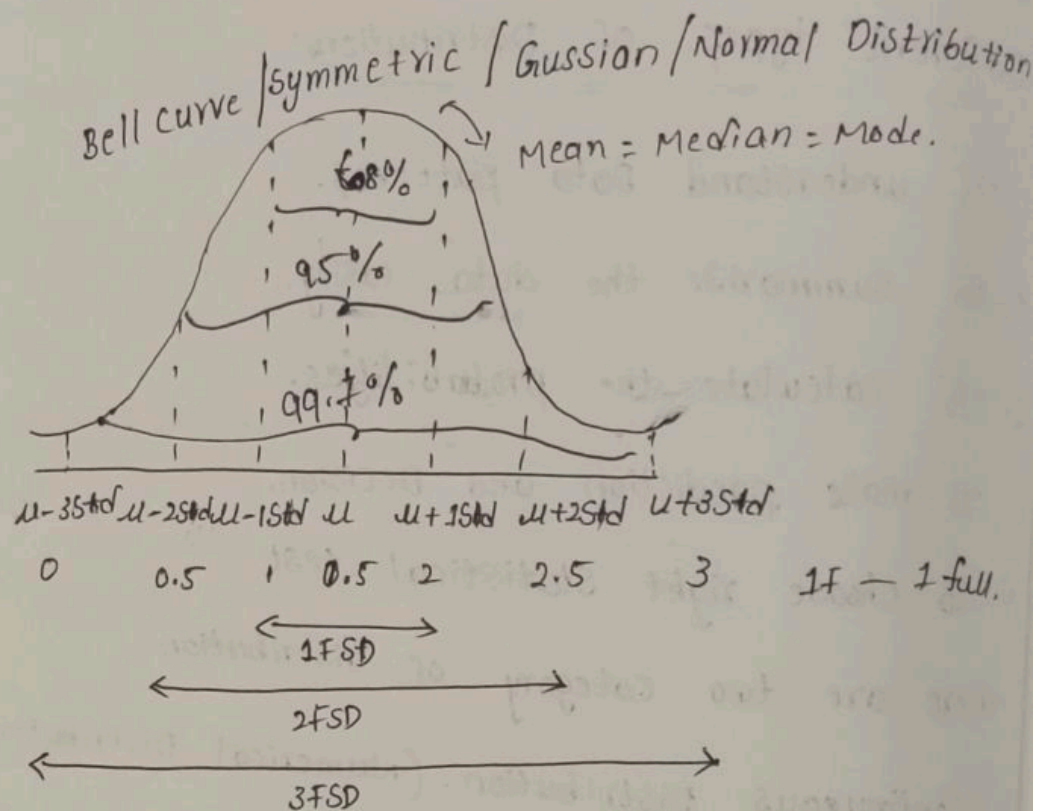 Bell curve / symmetric / Gussian / Normal Distribution
Mean = Median = Mode.
68%
95%
99.7%
μ-3Std μ-2Std μ-1Std μ μ+1Std μ+2Std μ+3Std
0 0.5 1 0.5 2 2.5 3 1F — 1 full.
1FSD
2FSD
3FSD